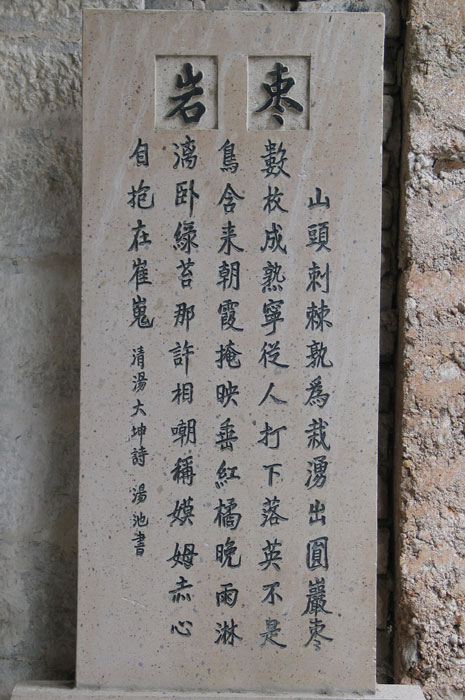 枣岩
山頭刺棘孰為栽湧出圓巖枣
數枚成熟寧從人打下落英不是
鳥含来朝霞掩映垂紅橘晚雨淋
漓卧綠苔那許相嘲稱嫫姆赤心
自抱在崔嵬 清湯大坤詩 湯池書